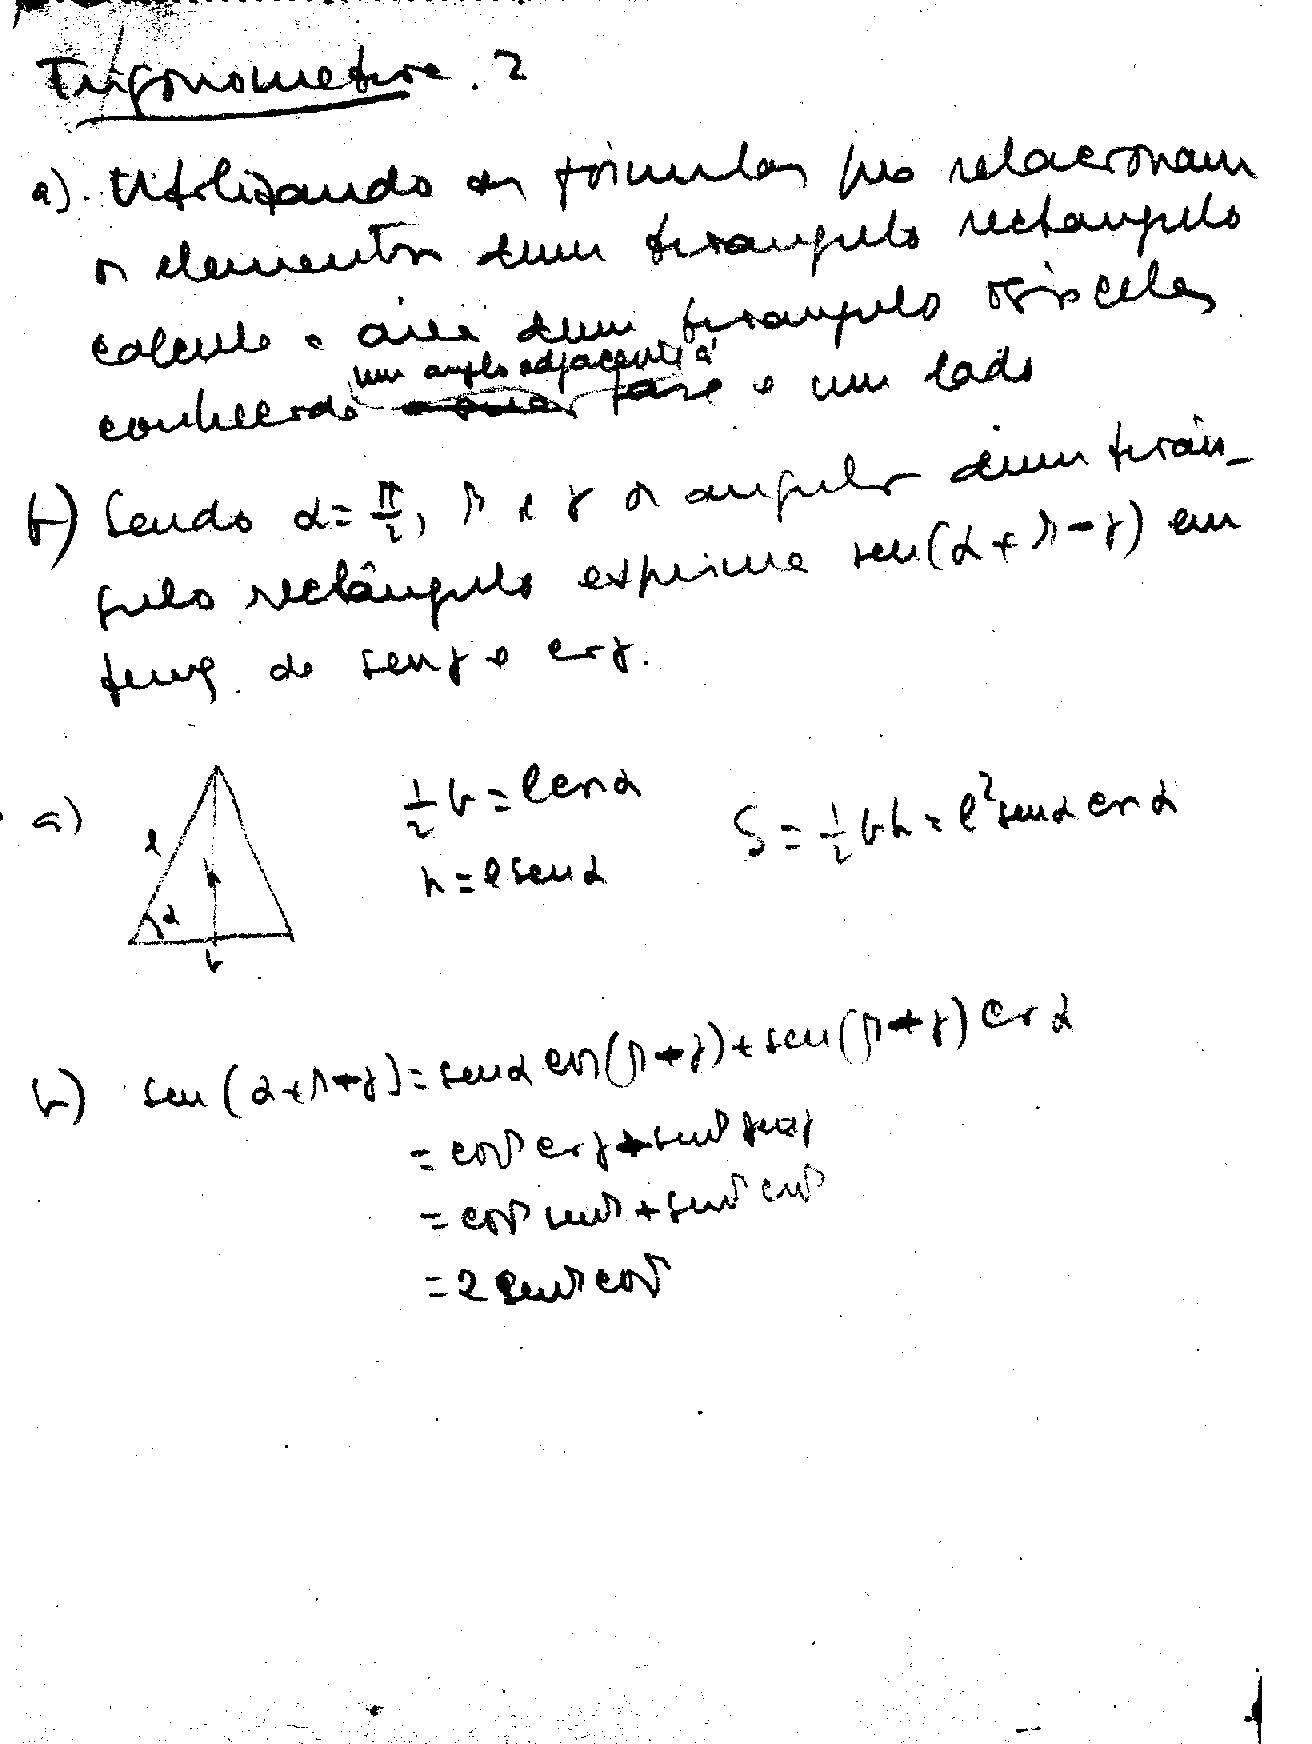 Trigonometria. 2
a). Utilizando as fórmulas que relacionam
os elementos dum triangulo rectangulo
calcule a área dum triangulo isósceles
um anglo adjacente à
conhecendo base e um lado
b) Sendo α = π/2, β e γ os angulos dum trian-
gulo rectângulo exprima sen(α+β-γ) em
termos de sen γ e cos γ.
a)
l
h
α
b
1/2 b = l cos α
h = l sen α
S = 1/2 bh = l² sen α cos α
b) sen(α+β-γ) = sen α cos(β-γ) + sen(β-γ) cos α
= cos β cos γ + sen β sen γ
= cos β sen β + sen β cos β
= 2 sen β cos β